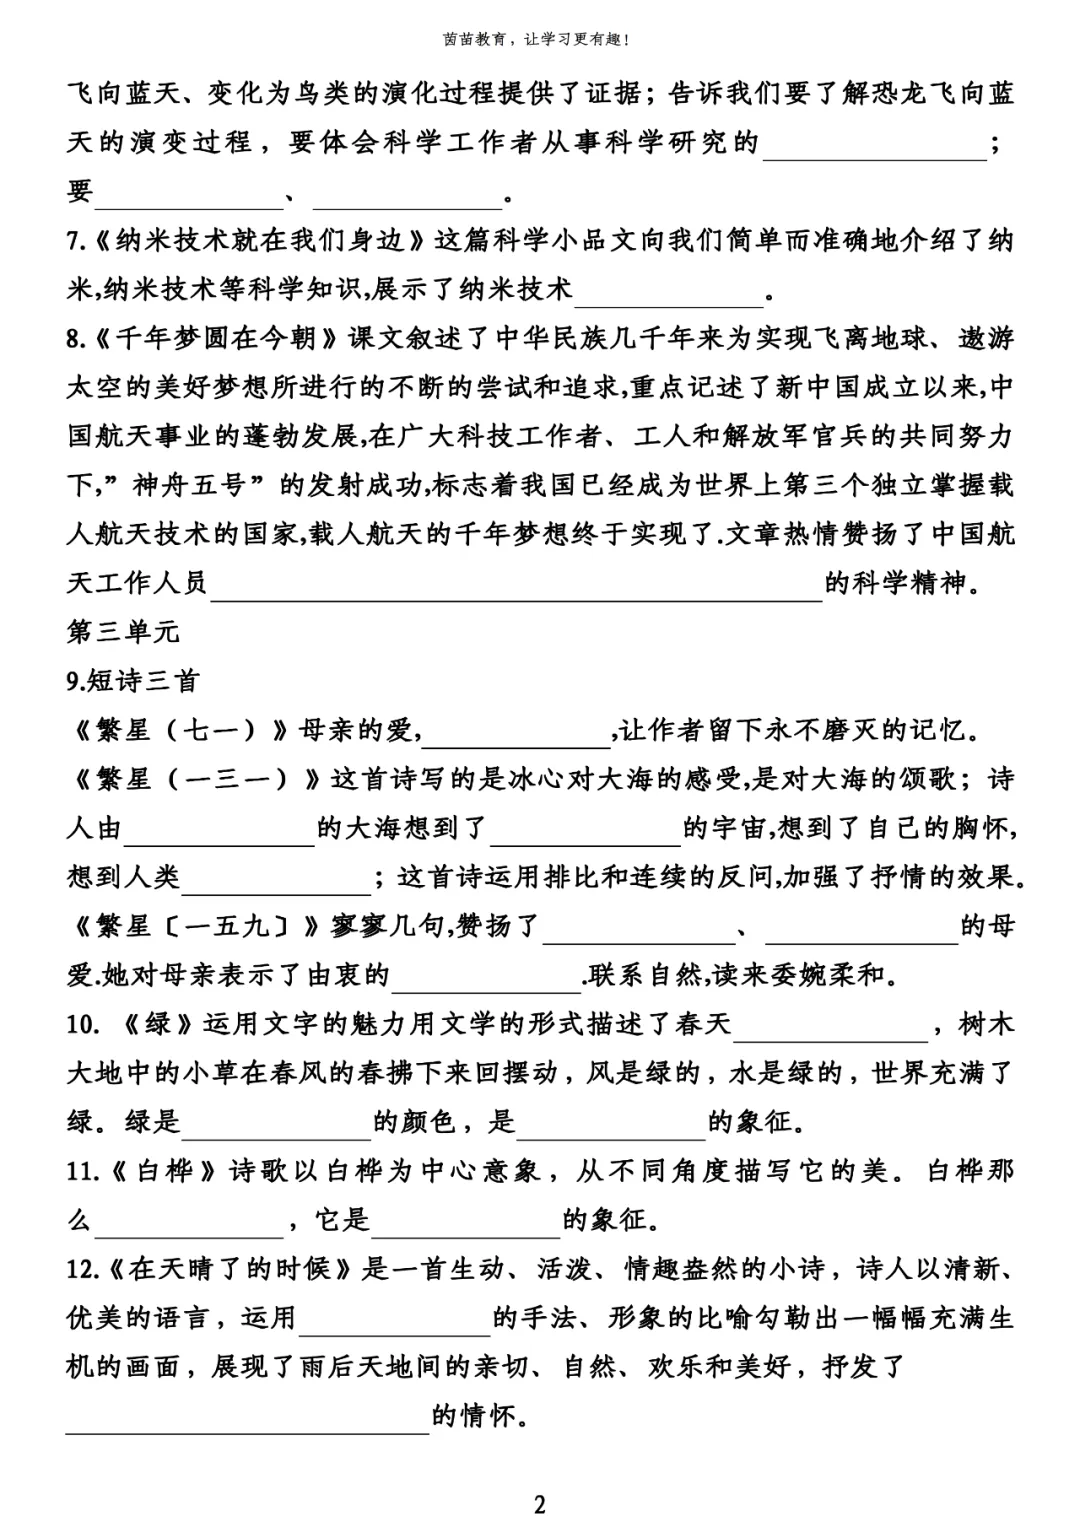 茵苗教育，让学习更有趣！
飞向蓝天、变化为鸟类的演化过程提供了证据；告诉我们要了解恐龙飞向蓝
天的演变过程，要体会科学工作者从事科学研究的________________；
要______________、______________。
7.《纳米技术就在我们身边》这篇科学小品文向我们简单而准确地介绍了纳
米,纳米技术等科学知识,展示了纳米技术______________。
8.《千年梦圆在今朝》课文叙述了中华民族几千年来为实现飞离地球、遨游
太空的美好梦想所进行的不断的尝试和追求,重点记述了新中国成立以来,中
国航天事业的蓬勃发展,在广大科技工作者、工人和解放军官兵的共同努力
下,”神舟五号”的发射成功,标志着我国已经成为世界上第三个独立掌握载
人航天技术的国家,载人航天的千年梦想终于实现了.文章热情赞扬了中国航
天工作人员____________________________________________的科学精神。
第三单元
9.短诗三首
《繁星（七一）》母亲的爱,______________,让作者留下永不磨灭的记忆。
《繁星（一三一）》这首诗写的是冰心对大海的感受,是对大海的颂歌；诗
人由______________的大海想到了______________的宇宙,想到了自己的胸怀,
想到人类______________；这首诗运用排比和连续的反问,加强了抒情的效果。
《繁星〔一五九〕》寥寥几句,赞扬了______________、______________的母
爱.她对母亲表示了由衷的______________.联系自然,读来委婉柔和。
10. 《绿》运用文字的魅力用文学的形式描述了春天______________，树木
大地中的小草在春风的春拂下来回摆动，风是绿的，水是绿的，世界充满了
绿。绿是______________的颜色，是______________的象征。
11.《白桦》诗歌以白桦为中心意象，从不同角度描写它的美。白桦那
么______________，它是______________的象征。
12.《在天晴了的时候》是一首生动、活泼、情趣盎然的小诗，诗人以清新、
优美的语言，运用______________的手法、形象的比喻勾勒出一幅幅充满生
机的画面，展现了雨后天地间的亲切、自然、欢乐和美好，抒发了
__________________________的情怀。
2